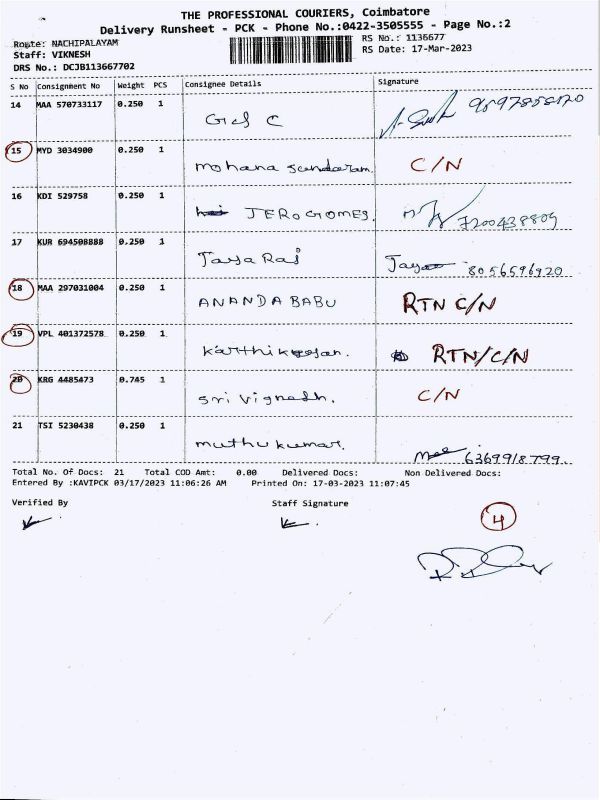 THE PROFESSIONAL COURIERS, Coimbatore
Delivery Runsheet - PCK - Phone No.:0422-3505555 - Page No.:2
Route: NACHIPALAYAM RS No.: 1136677
Staff: VIKNESH RS Date: 17-Mar-2023
DRS No.: DCJB113667702
S No Consignment No Weight PCS Consignee Details Signature
14 MAA 570733117 0.250 1
15 MYD 3034900 0.250 1 mohana sundaram. C/N
16 KDI 529758 0.250 1 JEROGOMES. 7200438809
17 KUR 694508888 0.250 1 Jaya Raj Jaya 8056596920
18 MAA 297031004 0.250 1 ANANDA BABU RTN C/N
19 VPL 401372578 0.250 1 RTN/C/N
20 KRG 4485473 0.745 1 sri vignesh. C/N
21 TSI 5230438 0.250 1 muthukumar. 6369918799.
Total No. Of Docs: 21 Total COD Amt: 0.00 Delivered Docs: Non Delivered Docs:
Entered By :KAVIPCK 03/17/2023 11:06:26 AM Printed On: 17-03-2023 11:07:45
Verified By Staff Signature
4